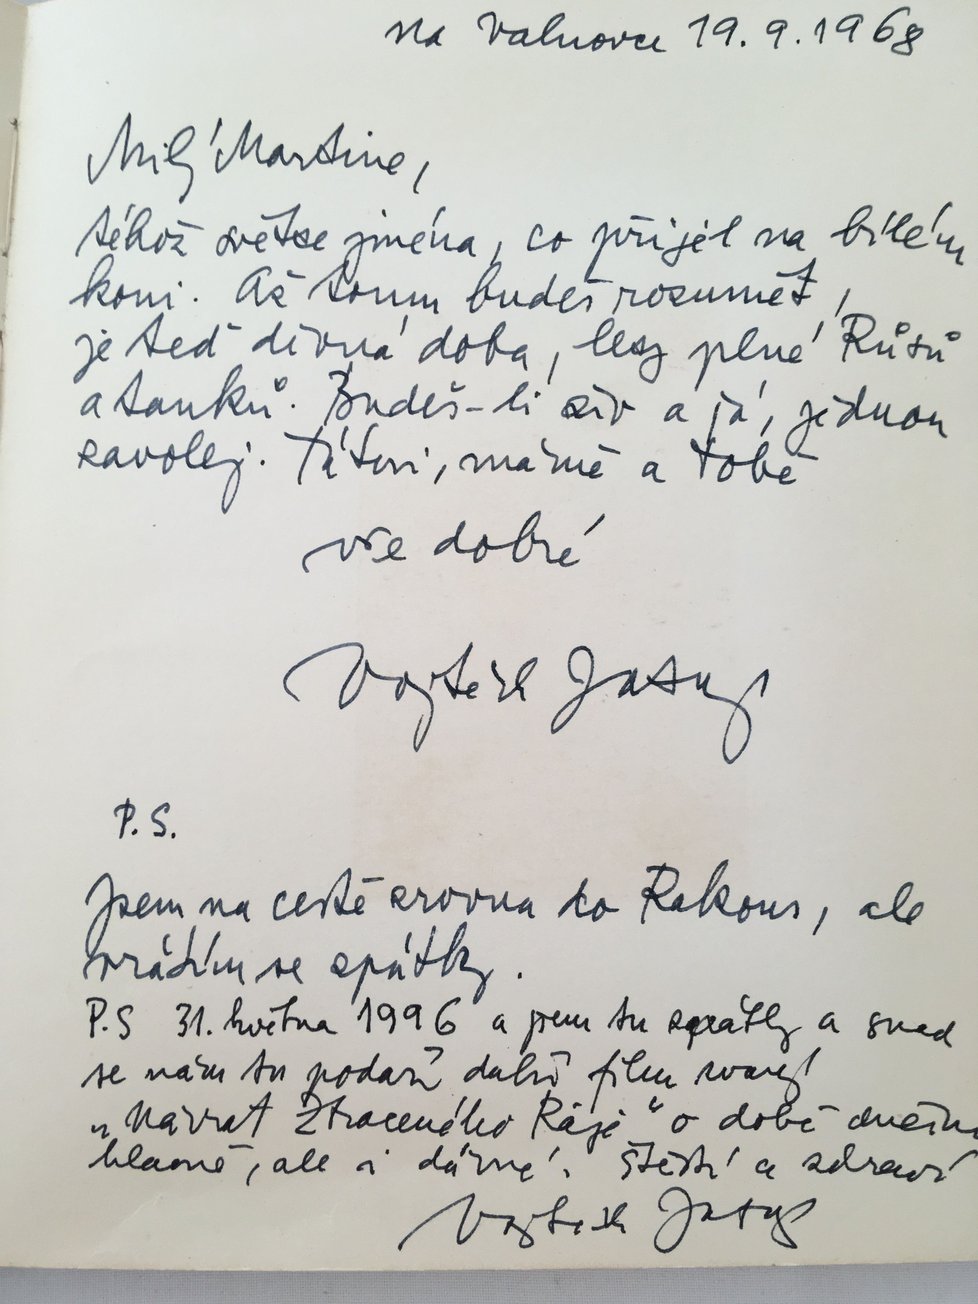 na Valnovce 19.9.1968
Milý Martine,
téhož světce jména, co přijel na bílém
koni. Až tomu budeš rozumět,
je teď divná doba, lesy plné Růsů
a tanků. Budeš-li živ a já, jednou
zavolej. Tátovi, mámě a tobě
vše dobré
Vojtěch Jasný
P.S.
Jsem na cestě zrovna do Rakous, ale
vrátím se zpátky.
P.S 31. května 1996 a jsem tu zpátky a snad
se nám tu podaří další film
„Návrat Ztraceného Ráje“ o době dnešní
hlavně, ale i dávné. Štěstí a zdraví
Vojtěch Jasný